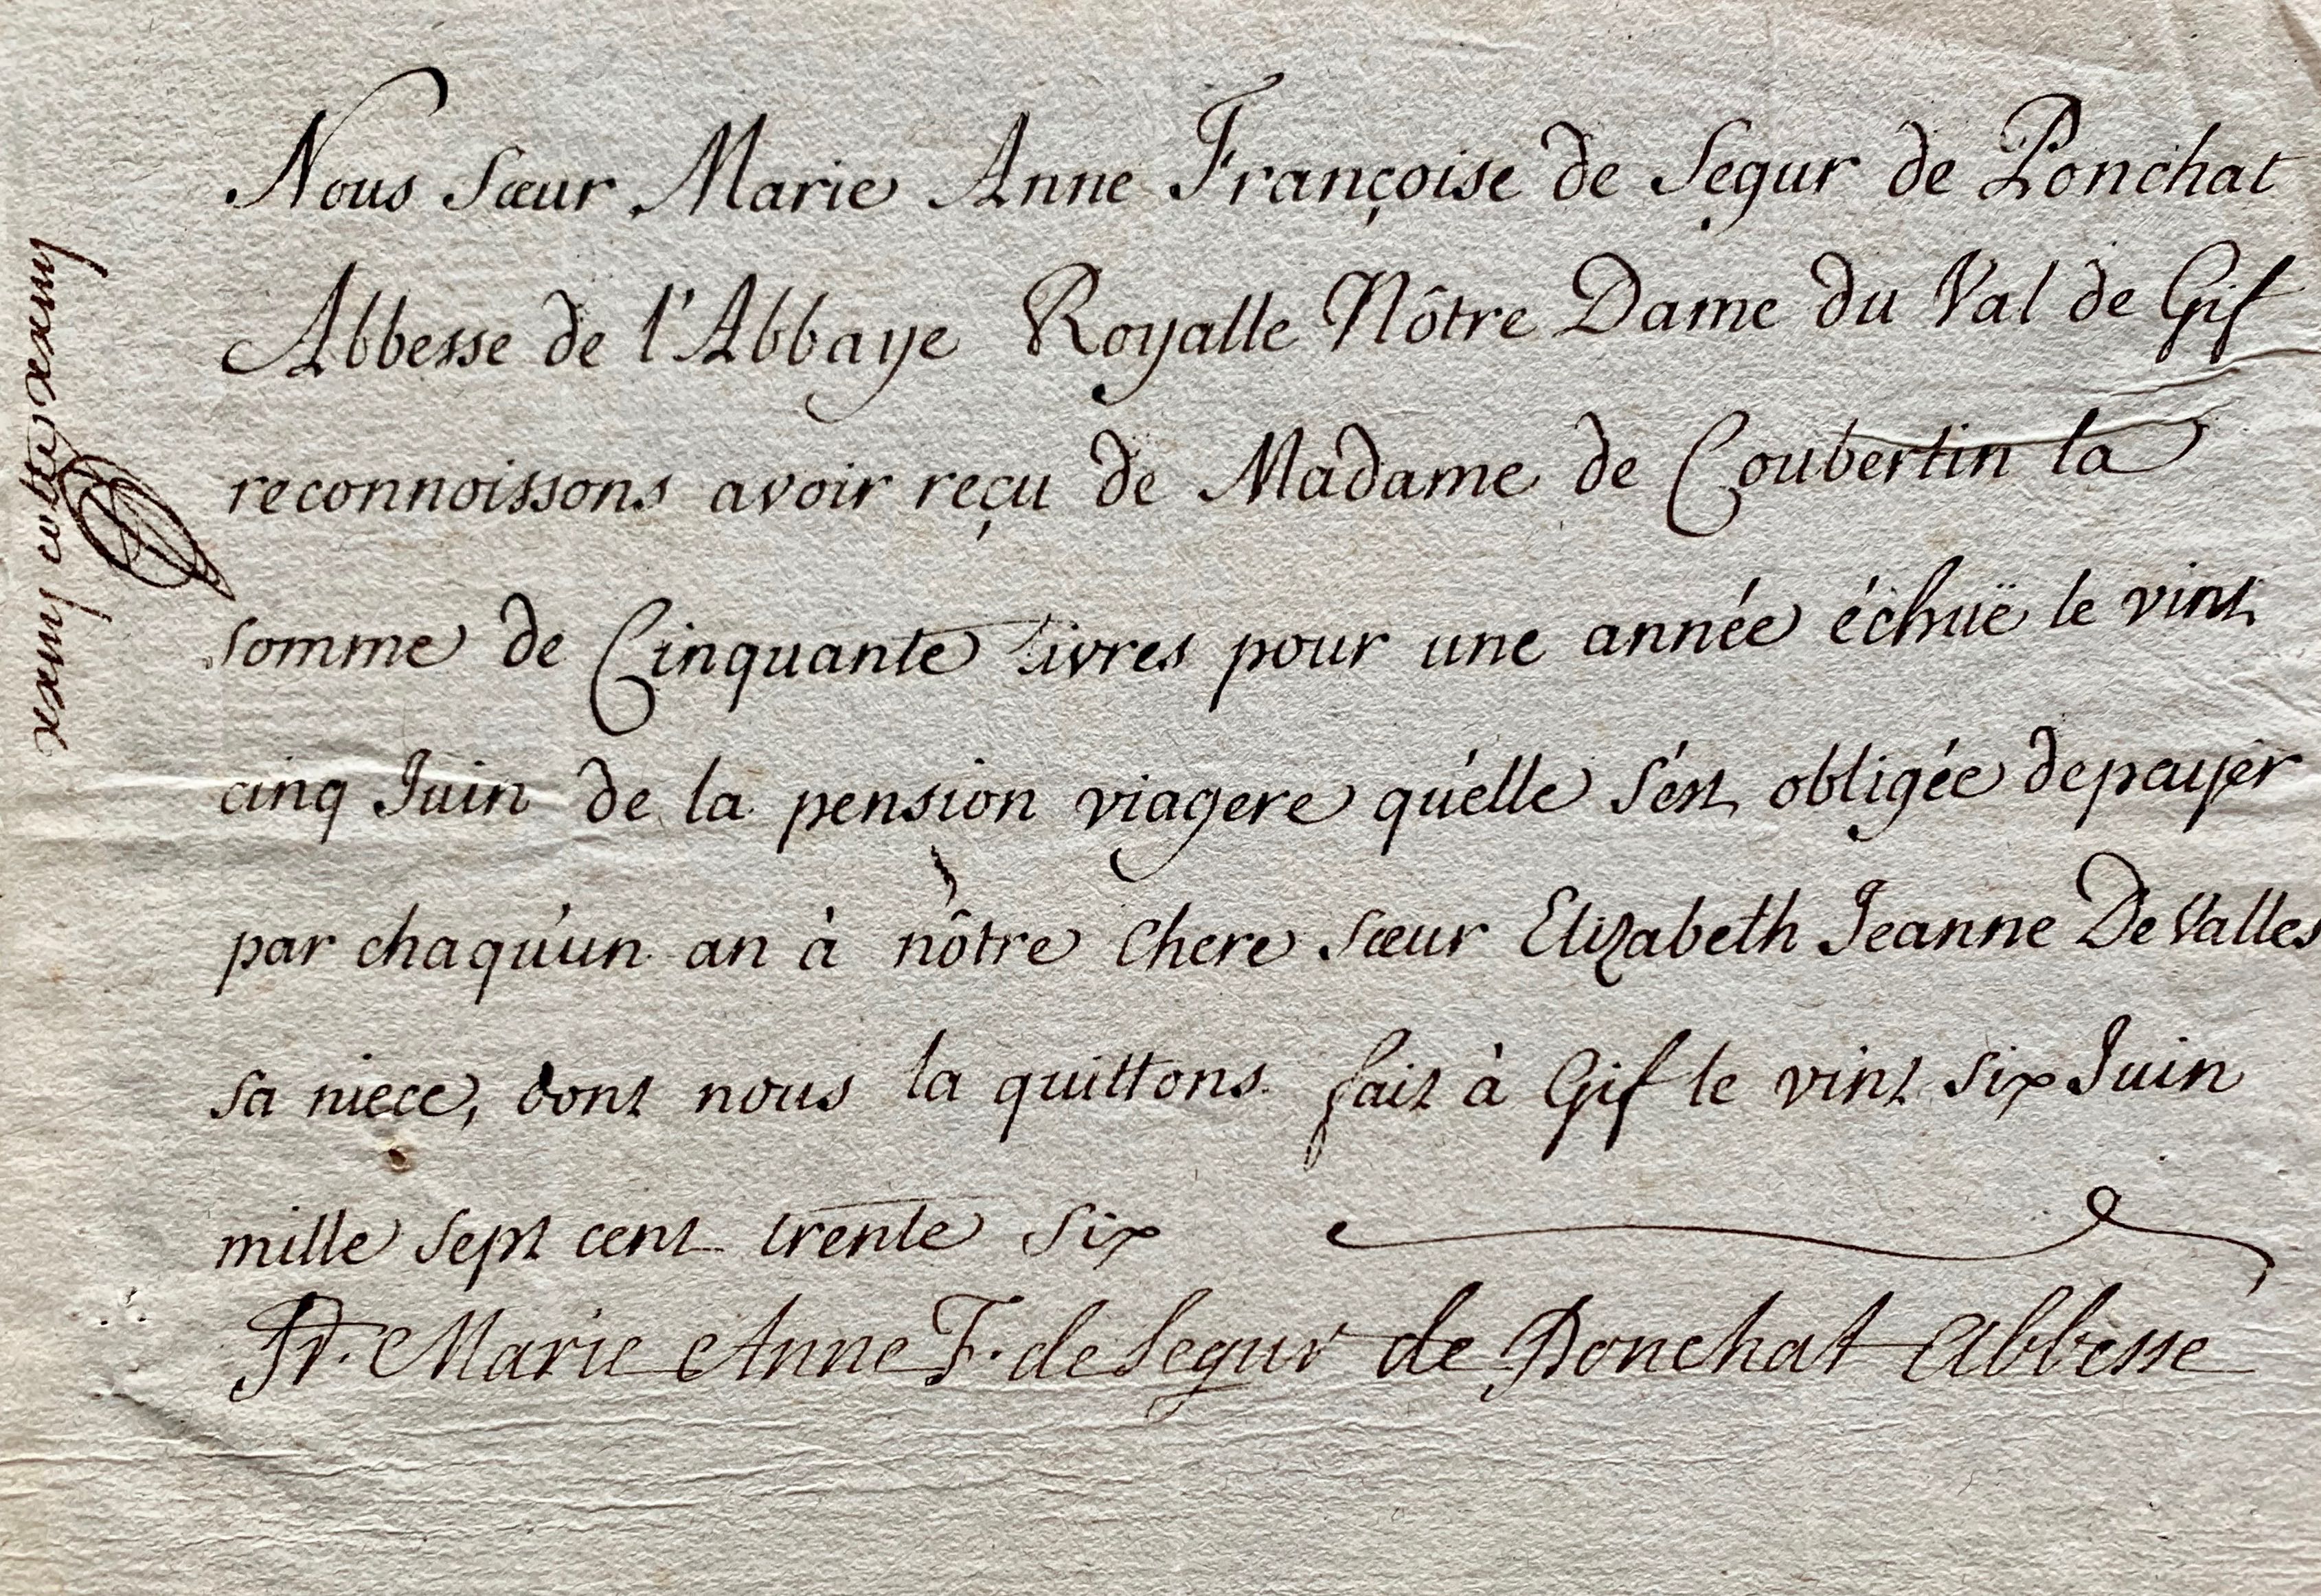 Nous Sœur Marie Anne Françoise de Segur de Ponchat
Abbesse de l'Abbaye Royalle Nôtre Dame du Val de Gif
reconnoissons avoir reçu de Madame de Coubertin la
somme de Cinquante Livres pour une année échuë le vint
cinq Juin de la pension viagere qu'elle s'est obligée de payer
par chaqu'un an à nôtre chere sœur Elizabeth Jeanne De Valles
sa niece, dont nous la quittons fait à Gif le vint six Juin
mille sept cent trente six
Sr. Marie Anne F. de Segur de Ponchat Abbesse